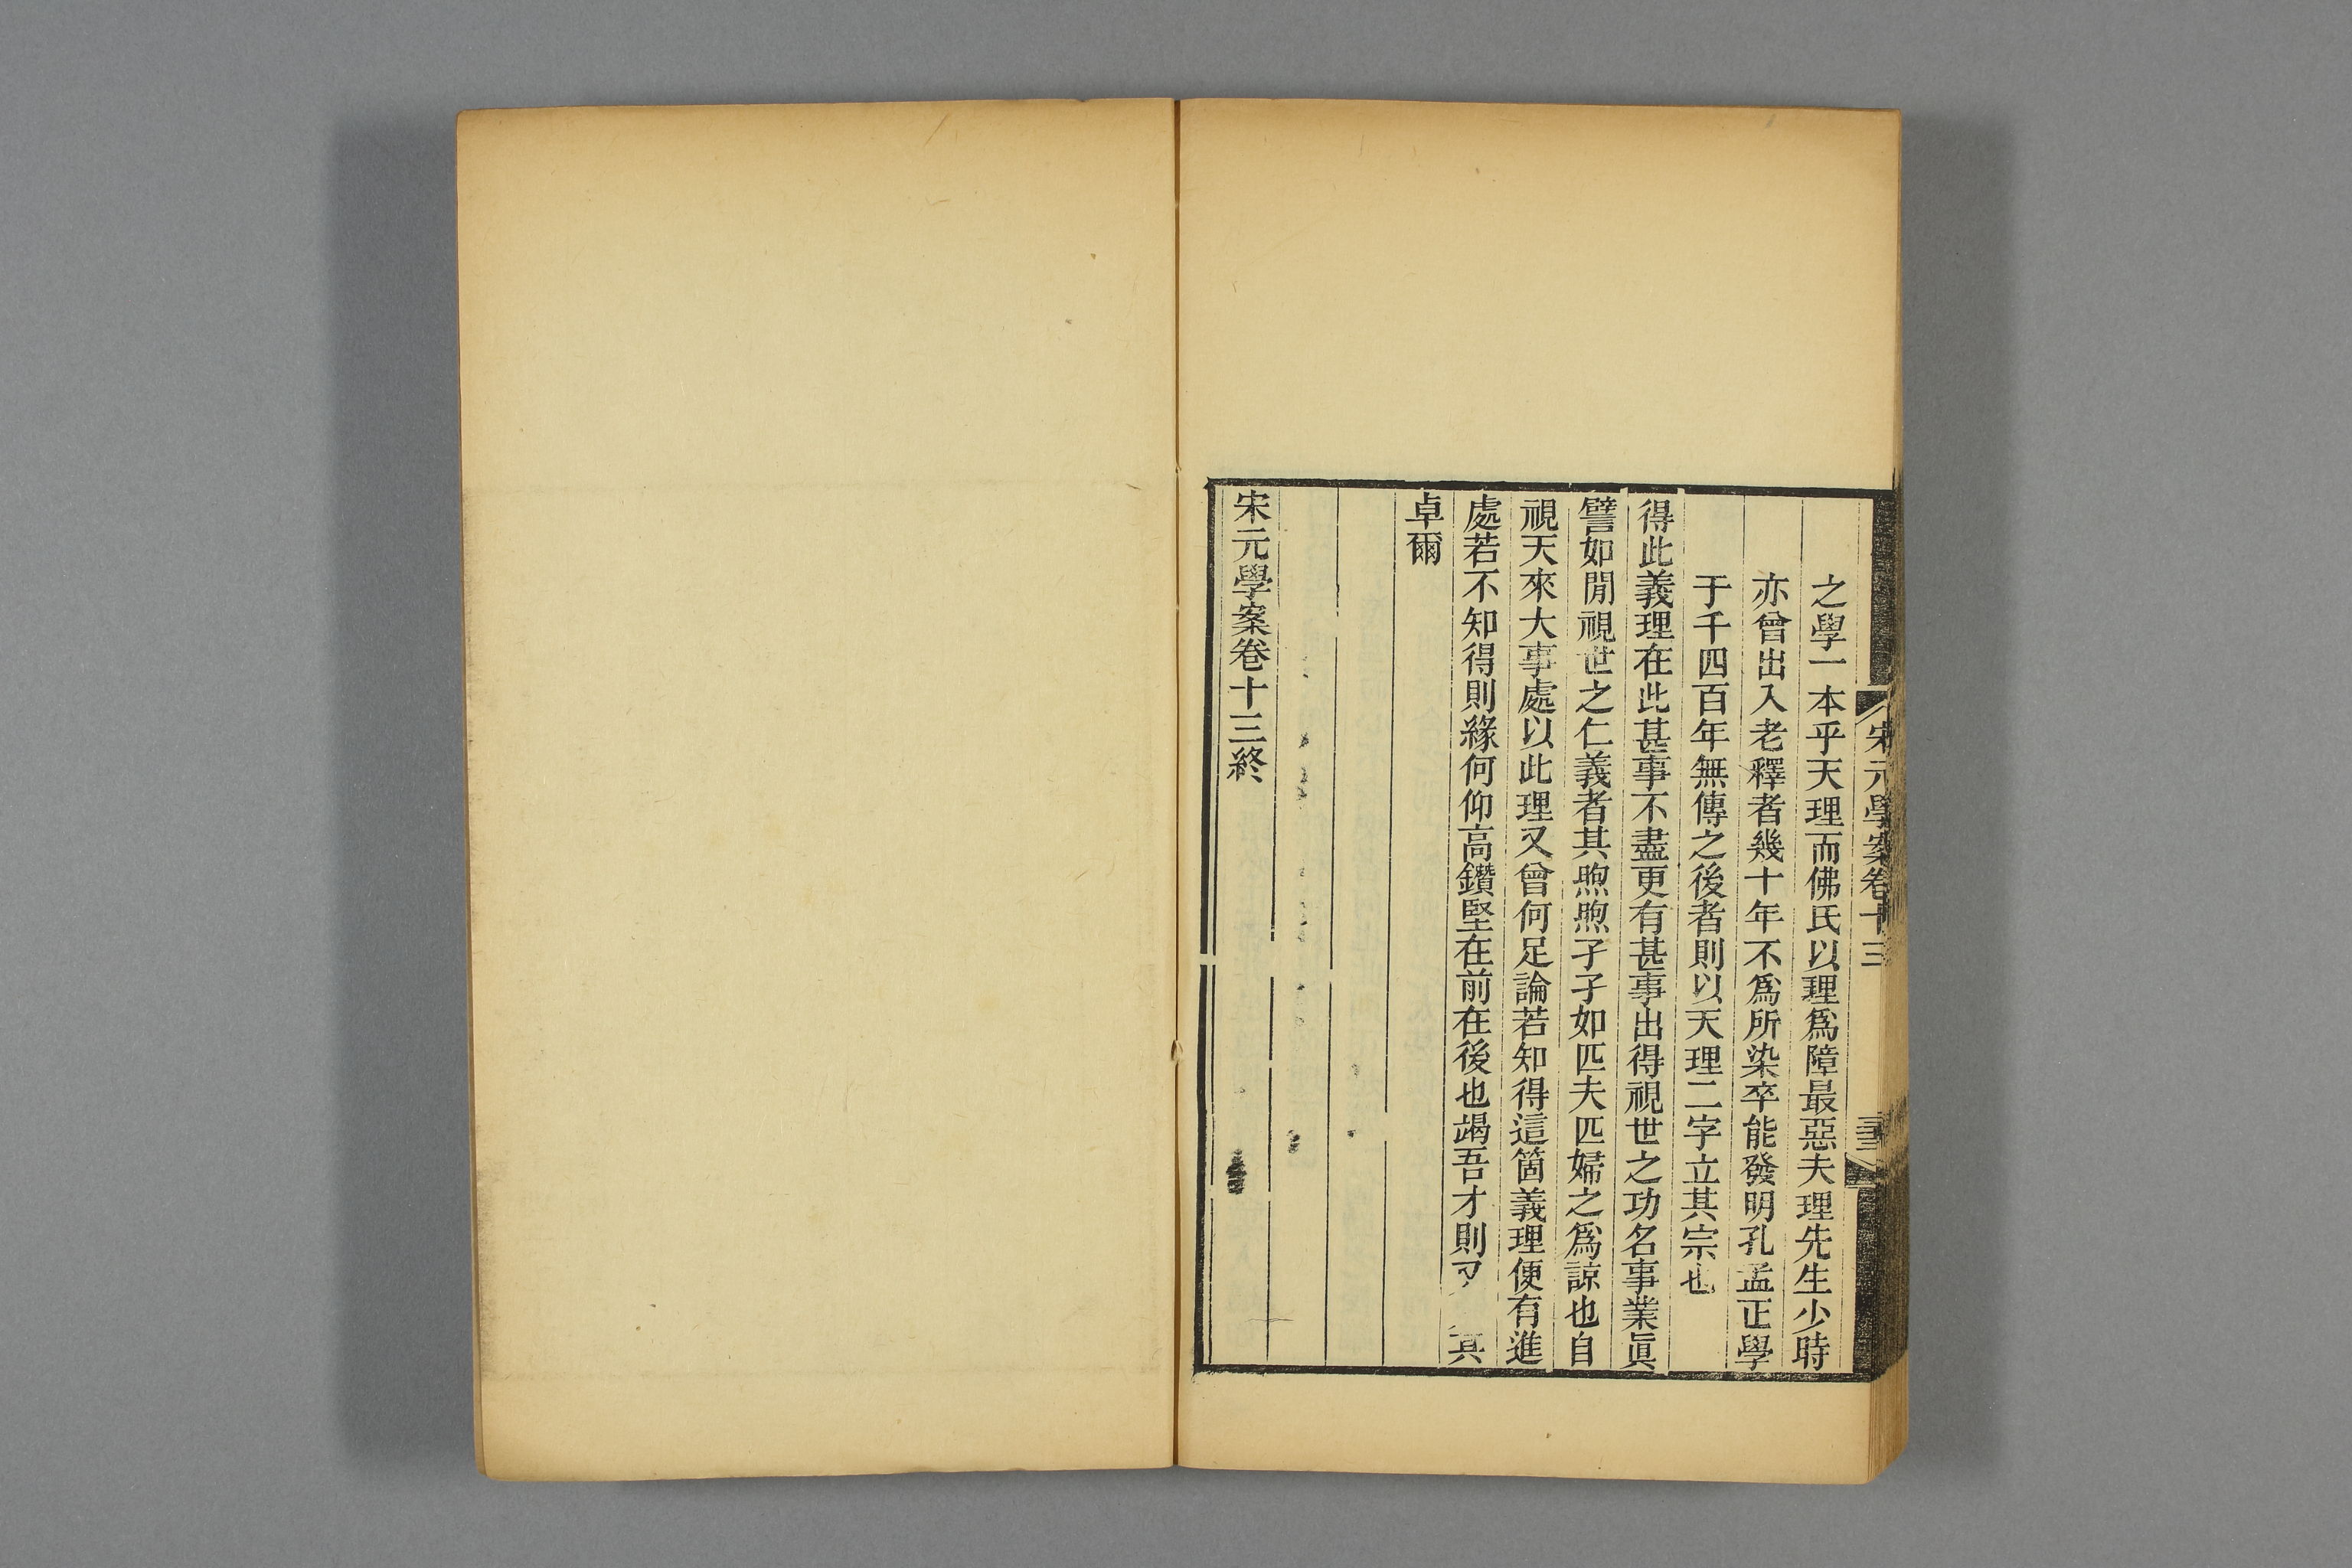 宋元學案卷十三
之學一本乎天理而佛氏以理爲障最惡夫理先生少時
亦曾出入老釋者幾十年不爲所染卒能發明孔孟正學
于千四百年無傳之後者則以天理二字立其宗也
得此義理在此甚事不盡更有甚事出得視世之功名事業眞
譬如閒視世之仁義者其煦煦孑孑如匹夫匹婦之爲諒也自
視天來大事處以此理又曾何足論若知得這箇義理便有進
處若不知得則緣何仰高鑽堅在前在後也竭吾才則又其
卓爾
宋元學案卷十三終